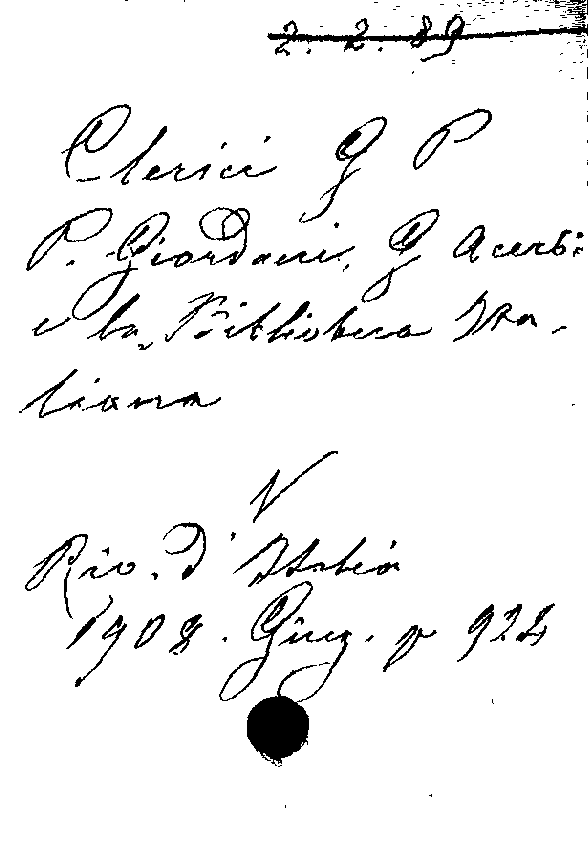 2. 2. 89
Clerici G P
P. Giordani, G Acerbi
e la Biblioteca Ita-
liana
V
Riv. d'Italia
1908. Giug. p 924